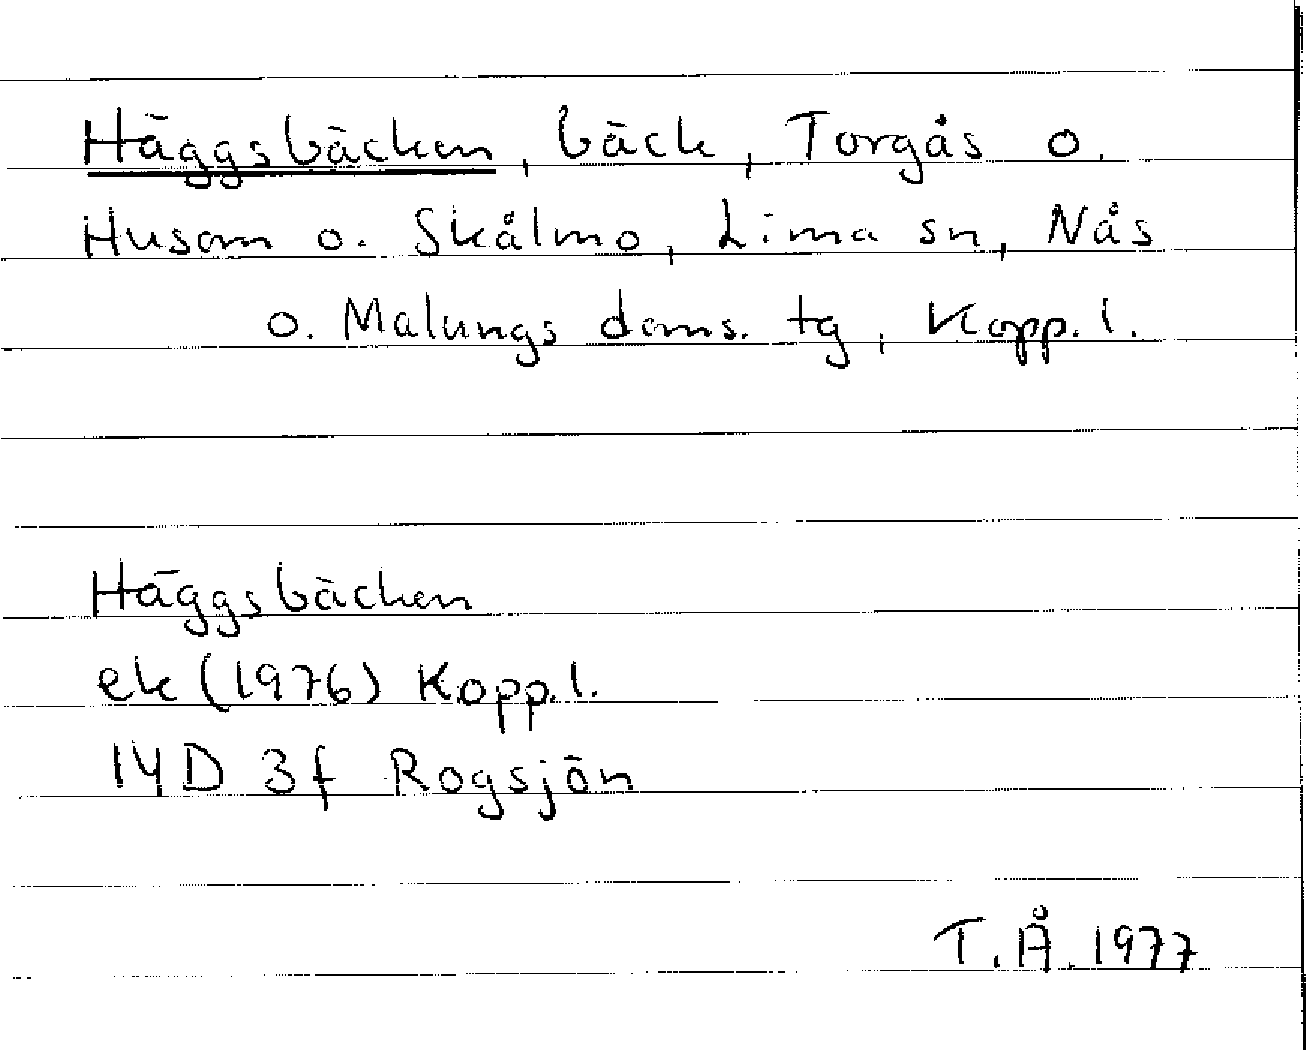 Häggsbäcken, bäck, Torgås o.
Husom o. Skålmo, Lima sn, Nås
o. Malungs doms. tg, Kopp. l.
Häggsbäcken
ek (1976) Kopp. l.
14D 3f Rogsjön
T.Å. 1977